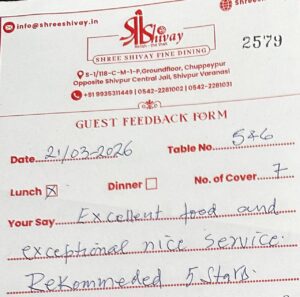 info@shreeshivay.in
shree
Shivay
SHREE SHIVAY FINE DINING
2579
S-1/118-C-M-1-P, Groundfloor, Chuppeypur
Opposite Shivpur Central Jail, Shivpur Varanasi
+91 9935311449 | 0542-2281002 | 0542-2281031
GUEST FEEDBACK FORM
Date 21/03-2026 Table No. 5&6
Lunch ☒ Dinner ☐ No. of Cover 7
Your Say Excellent food and
exceptional nice service.
Rekommeded 5 Stars.